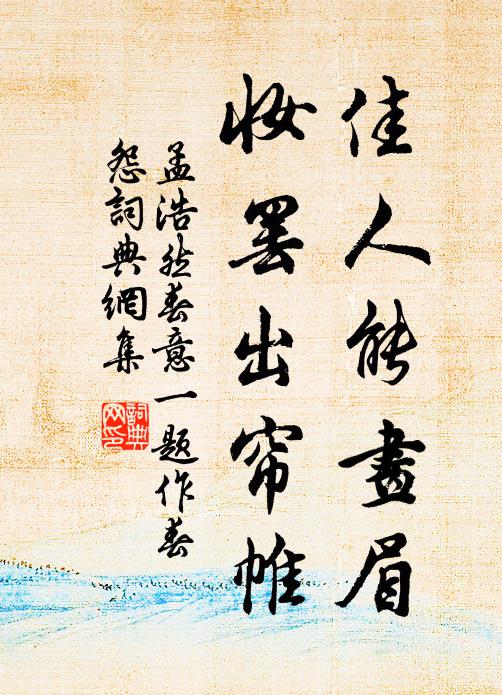 佳人能畫眉
妝罷出帘帷
孟浩然春意一題作春
怨詞典網集
詞典
网印